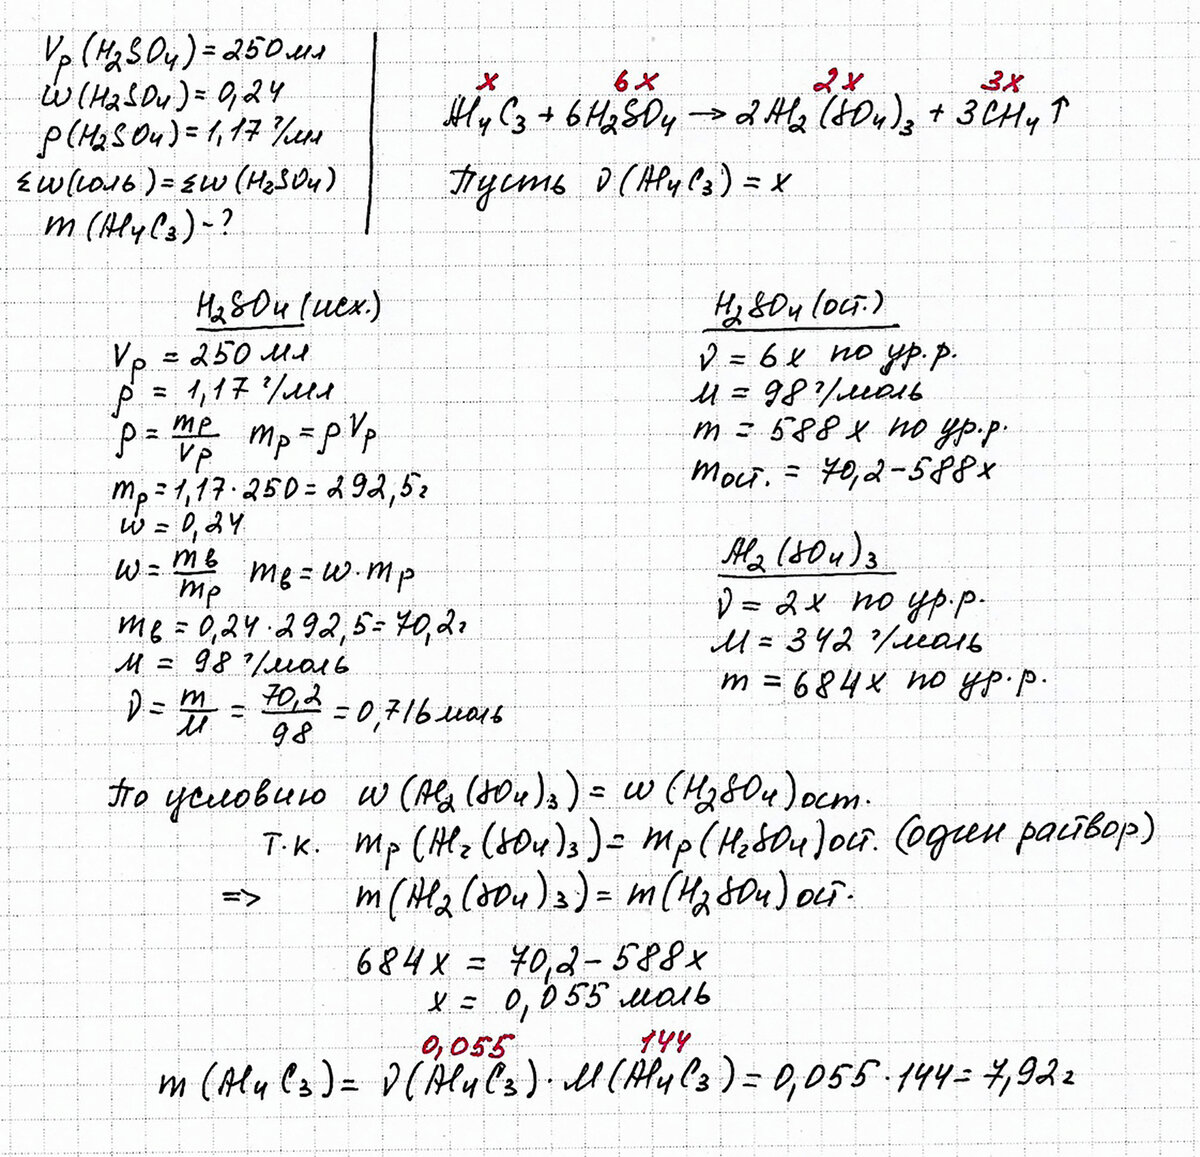 Vр(H₂SO₄) = 250 мл
w(H₂SO₄) = 0,24
ρ(H₂SO₄) = 1,17 г/мл
Σw(соль) = Σw(H₂SO₄)
m(Al₄C₃) - ?
x 6x 2x 3x
Al₄C₃ + 6H₂SO₄ → 2Al₂(SO₄)₃ + 3CH₄↑
Пусть ν(Al₄C₃) = x
H₂SO₄ (исх.)
Vр = 250 мл
ρ = 1,17 г/мл
ρ = mр/Vр mр = ρVр
mр = 1,17 · 250 = 292,5 г
w = 0,24
w = mв/mр mв = w · mр
mв = 0,24 · 292,5 = 70,2 г
M = 98 г/моль
ν = m/M = 70,2/98 = 0,716 моль
H₂SO₄ (ост.)
ν = 6x по ур.р.
M = 98 г/моль
m = 588x по ур.р.
mост. = 70,2 - 588x
Al₂(SO₄)₃
ν = 2x по ур.р.
M = 342 г/моль
m = 684x по ур.р.
По условию w(Al₂(SO₄)₃) = w(H₂SO₄)ост.
т.к. mр(Al₂(SO₄)₃) = mр(H₂SO₄)ост. (один раствор)
=> m(Al₂(SO₄)₃) = m(H₂SO₄)ост.
684x = 70,2 - 588x
x = 0,055 моль
0,055 144
m(Al₄C₃) = ν(Al₄C₃) · M(Al₄C₃) = 0,055 · 144 = 7,92 г